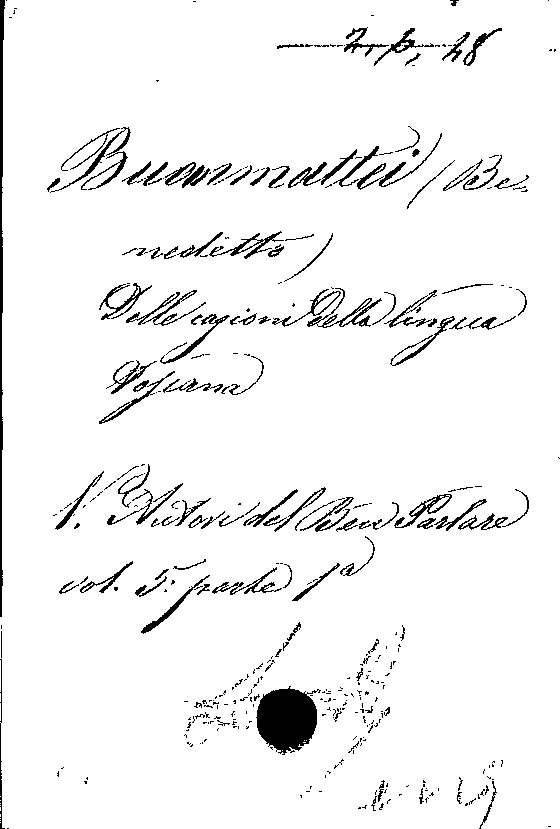 2, p, 28
Buonmattei (Be-
nedetto)
Delle cagioni della lingua
Toscana
V. Autori del Ben Parlare
vol. 5: parte 1ª